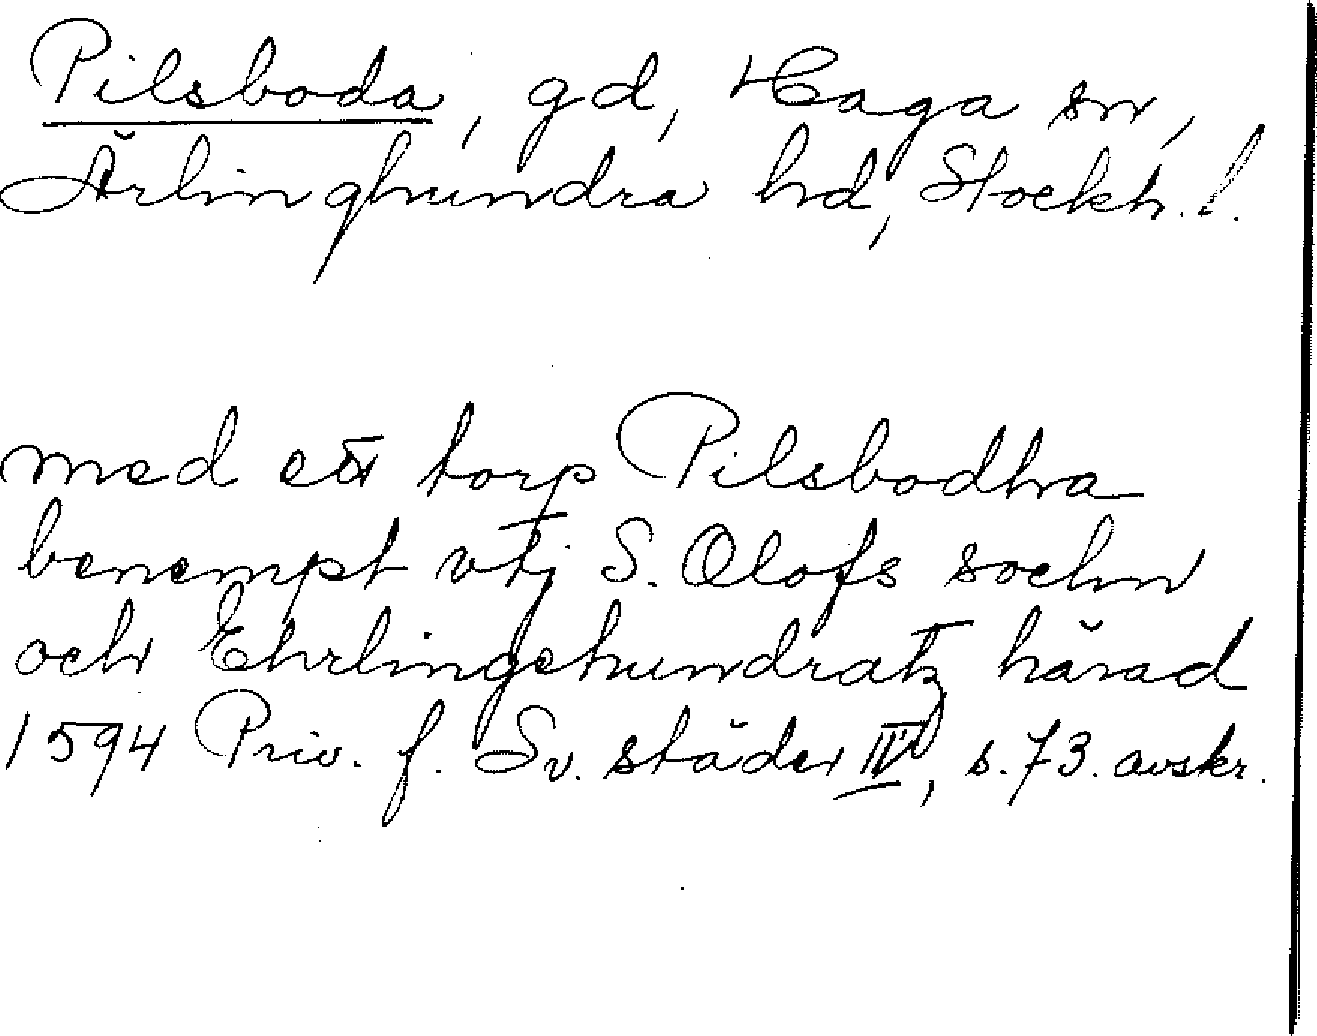 Pilsboda, gd, Haga sn,
Ärlinghundra hd, Stockh. l.
med ett torp Pilsbodha
benempt vtj S. Olofs sochn
och Ehrlingehundratz härad
1594 Priv. f. Sv. städer IV, s. 73. avskr.